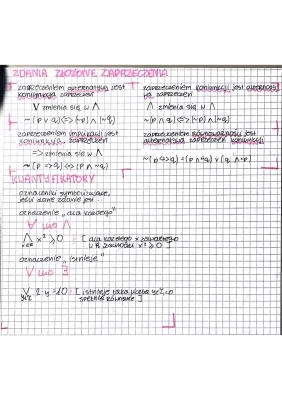 ZDANIA ZŁOŻONE ZAPRZECZENIA
zaprzeczeniem alternatywy jest
koniunkcja zaprzeczeń
V zmienia się w Λ
~(p ∨ q) <=> (~p) ∧ (~q)
zaprzeczeniem implikacji jest
koniunkcja zaprzeczeń
=> zmienia się w Λ
~(p => q) <=> (p ∧ ~q)
zaprzeczeniem koniunkcji jest
zaprzeczeń
Λ zmienia się w V
~(p ∧ q) <=> (~p ∨ ~q)
zaprzeczeniem równoważności jest
alternatywa zaprzeczeń
~(p <=> q) = (p ∧ ~q) ∨ (q ∧ ~p)
KWANTYFIKATORY
oznaczniki symbolizujące,
jeśli dane zdanie jest...
oznaczenie „dla każdego"
∀ lub Λ
Λ x² ≥ 0 [dla każdego x
x² ≥ 0]
oznaczenie „istnieje"
V lub ∃
V 2·y=10 [istnieje taka liczba
spełnia równanie]